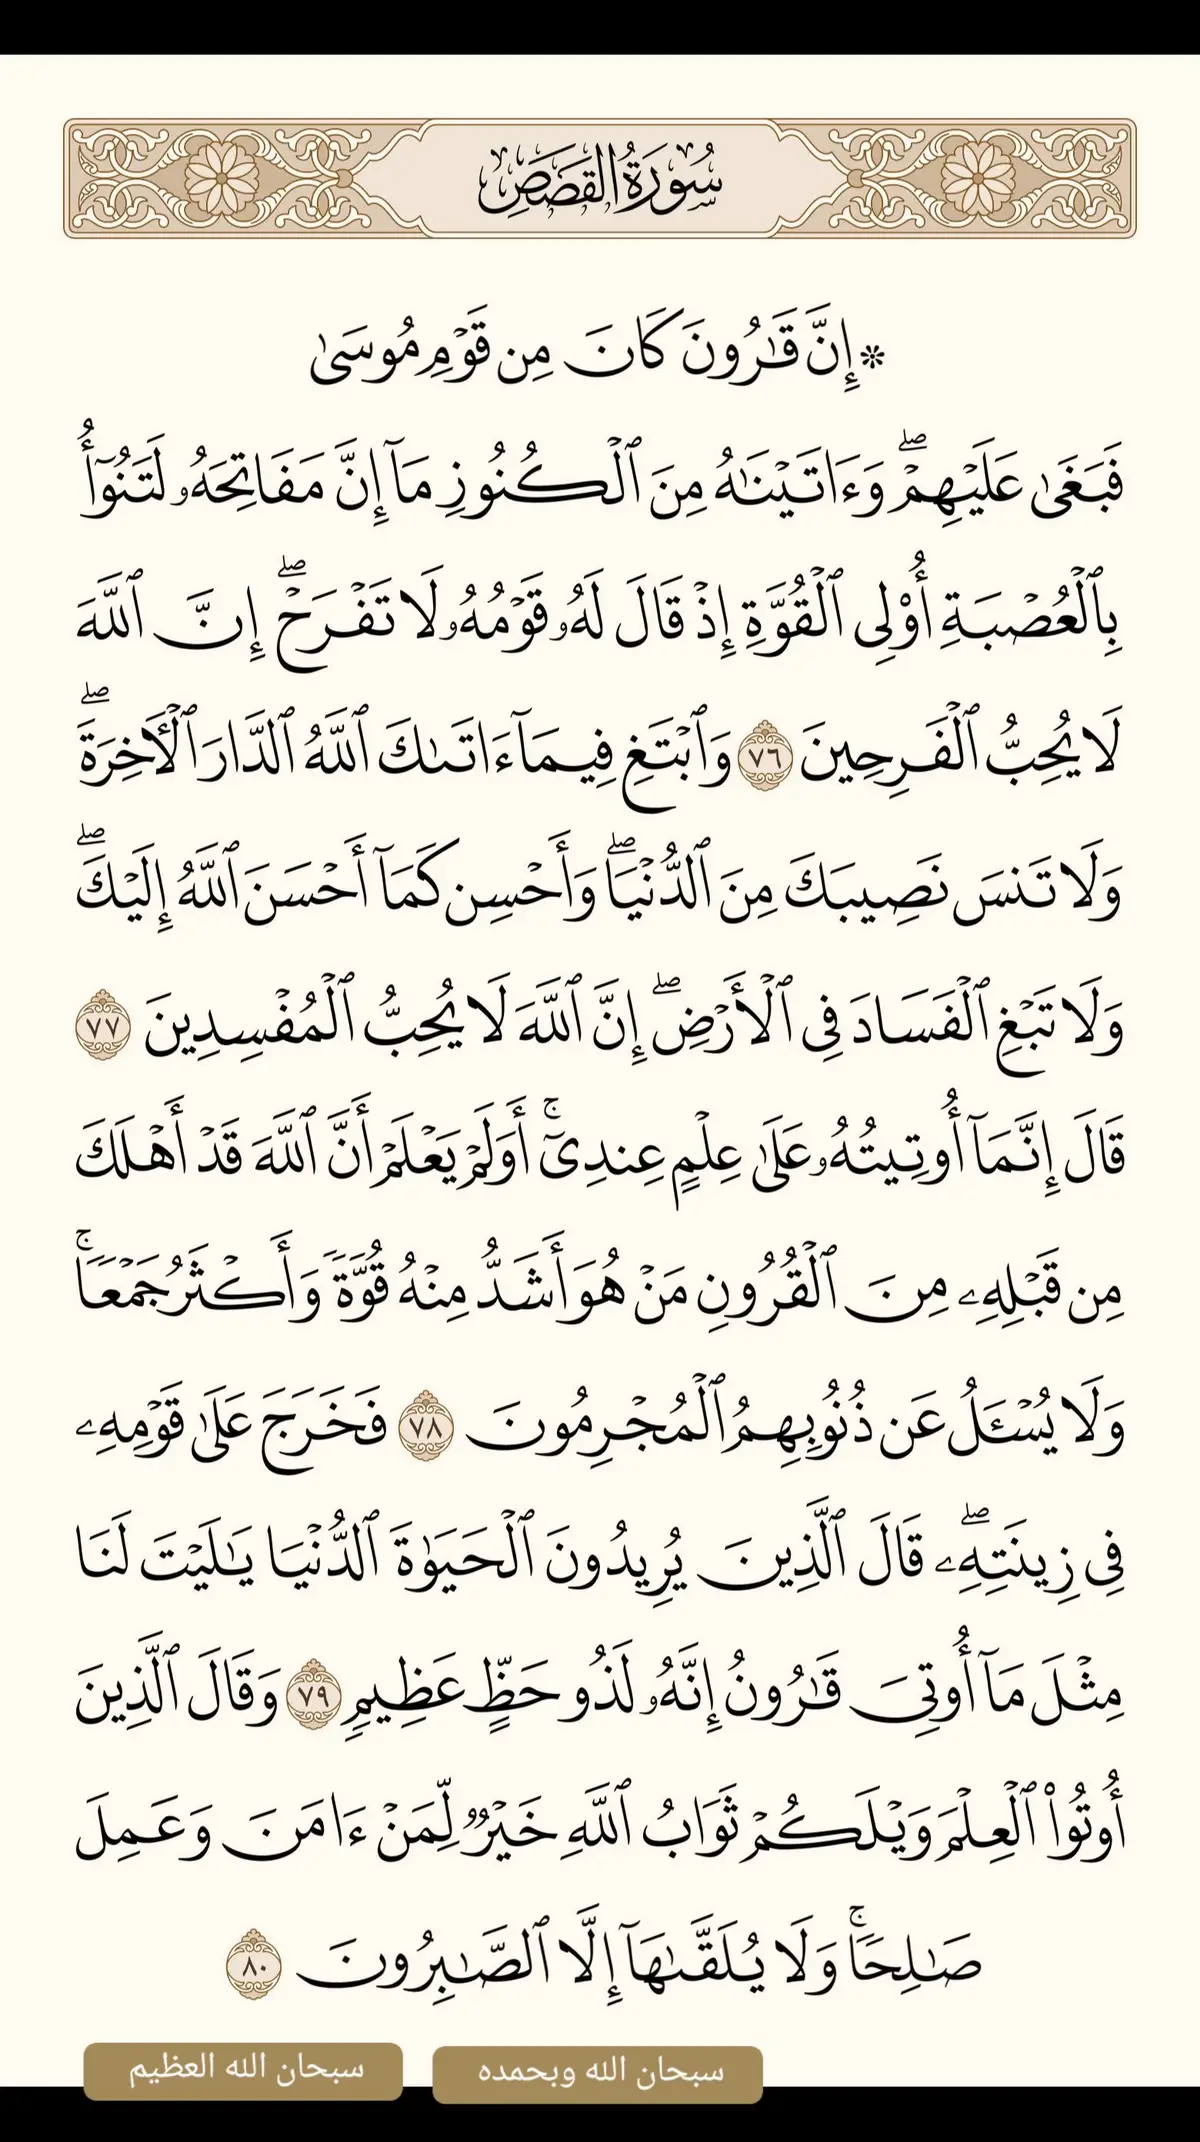 سُورَةُ القَصَصِ
۞ إِنَّ قَٰرُونَ كَانَ مِن قَوۡمِ مُوسَىٰ
فَبَغَىٰ عَلَيۡهِمۡۖ وَءَاتَيۡنَٰهُ مِنَ ٱلۡكُنُوزِ مَآ إِنَّ مَفَاتِحَهُۥ لَتَنُوٓأُ
بِٱلۡعُصۡبَةِ أُوْلِي ٱلۡقُوَّةِ إِذۡ قَالَ لَهُۥ قَوۡمُهُۥ لَا تَفۡرَحۡۖ إِنَّ ٱللَّهَ
لَا يُحِبُّ ٱلۡفَرِحِينَ ٧٦ وَٱبۡتَغِ فِيمَآ ءَاتَىٰكَ ٱللَّهُ ٱلدَّارَ ٱلۡأٓخِرَةَۖ
وَلَا تَنسَ نَصِيبَكَ مِنَ ٱلدُّنۡيَاۖ وَأَحۡسِن كَمَآ أَحۡسَنَ ٱللَّهُ إِلَيۡكَۖ
وَلَا تَبۡغِ ٱلۡفَسَادَ فِي ٱلۡأَرۡضِۖ إِنَّ ٱللَّهَ لَا يُحِبُّ ٱلۡمُفۡسِدِينَ ٧٧
قَالَ إِنَّمَآ أُوتِيتُهُۥ عَلَىٰ عِلۡمٍ عِندِيٓۚ أَوَلَمۡ يَعۡلَمۡ أَنَّ ٱللَّهَ قَدۡ أَهۡلَكَ
مِن قَبۡلِهِۦ مِنَ ٱلۡقُرُونِ مَنۡ هُوَ أَشَدُّ مِنۡهُ قُوَّةٗ وَأَكۡثَرُ جَمۡعٗاۚ
وَلَا يُسۡـَٔلُ عَن ذُنُوبِهِمُ ٱلۡمُجۡرِمُونَ ٧٨ فَخَرَجَ عَلَىٰ قَوۡمِهِۦ
فِي زِينَتِهِۦۖ قَالَ ٱلَّذِينَ يُرِيدُونَ ٱلۡحَيَوٰةَ ٱلدُّنۡيَا يَٰلَيۡتَ لَنَا
مِثۡلَ مَآ أُوتِيَ قَٰرُونُ إِنَّهُۥ لَذُو حَظٍّ عَظِيمٖ ٧٩ وَقَالَ ٱلَّذِينَ
أُوتُواْ ٱلۡعِلۡمَ وَيۡلَكُمۡ ثَوَابُ ٱللَّهِ خَيۡرٞ لِّمَنۡ ءَامَنَ وَعَمِلَ
صَٰلِحٗاۚ وَلَا يُلَقَّىٰهَآ إِلَّا ٱلصَّٰبِرُونَ ٨٠
سبحان الله وبحمده
سبحان الله العظيم